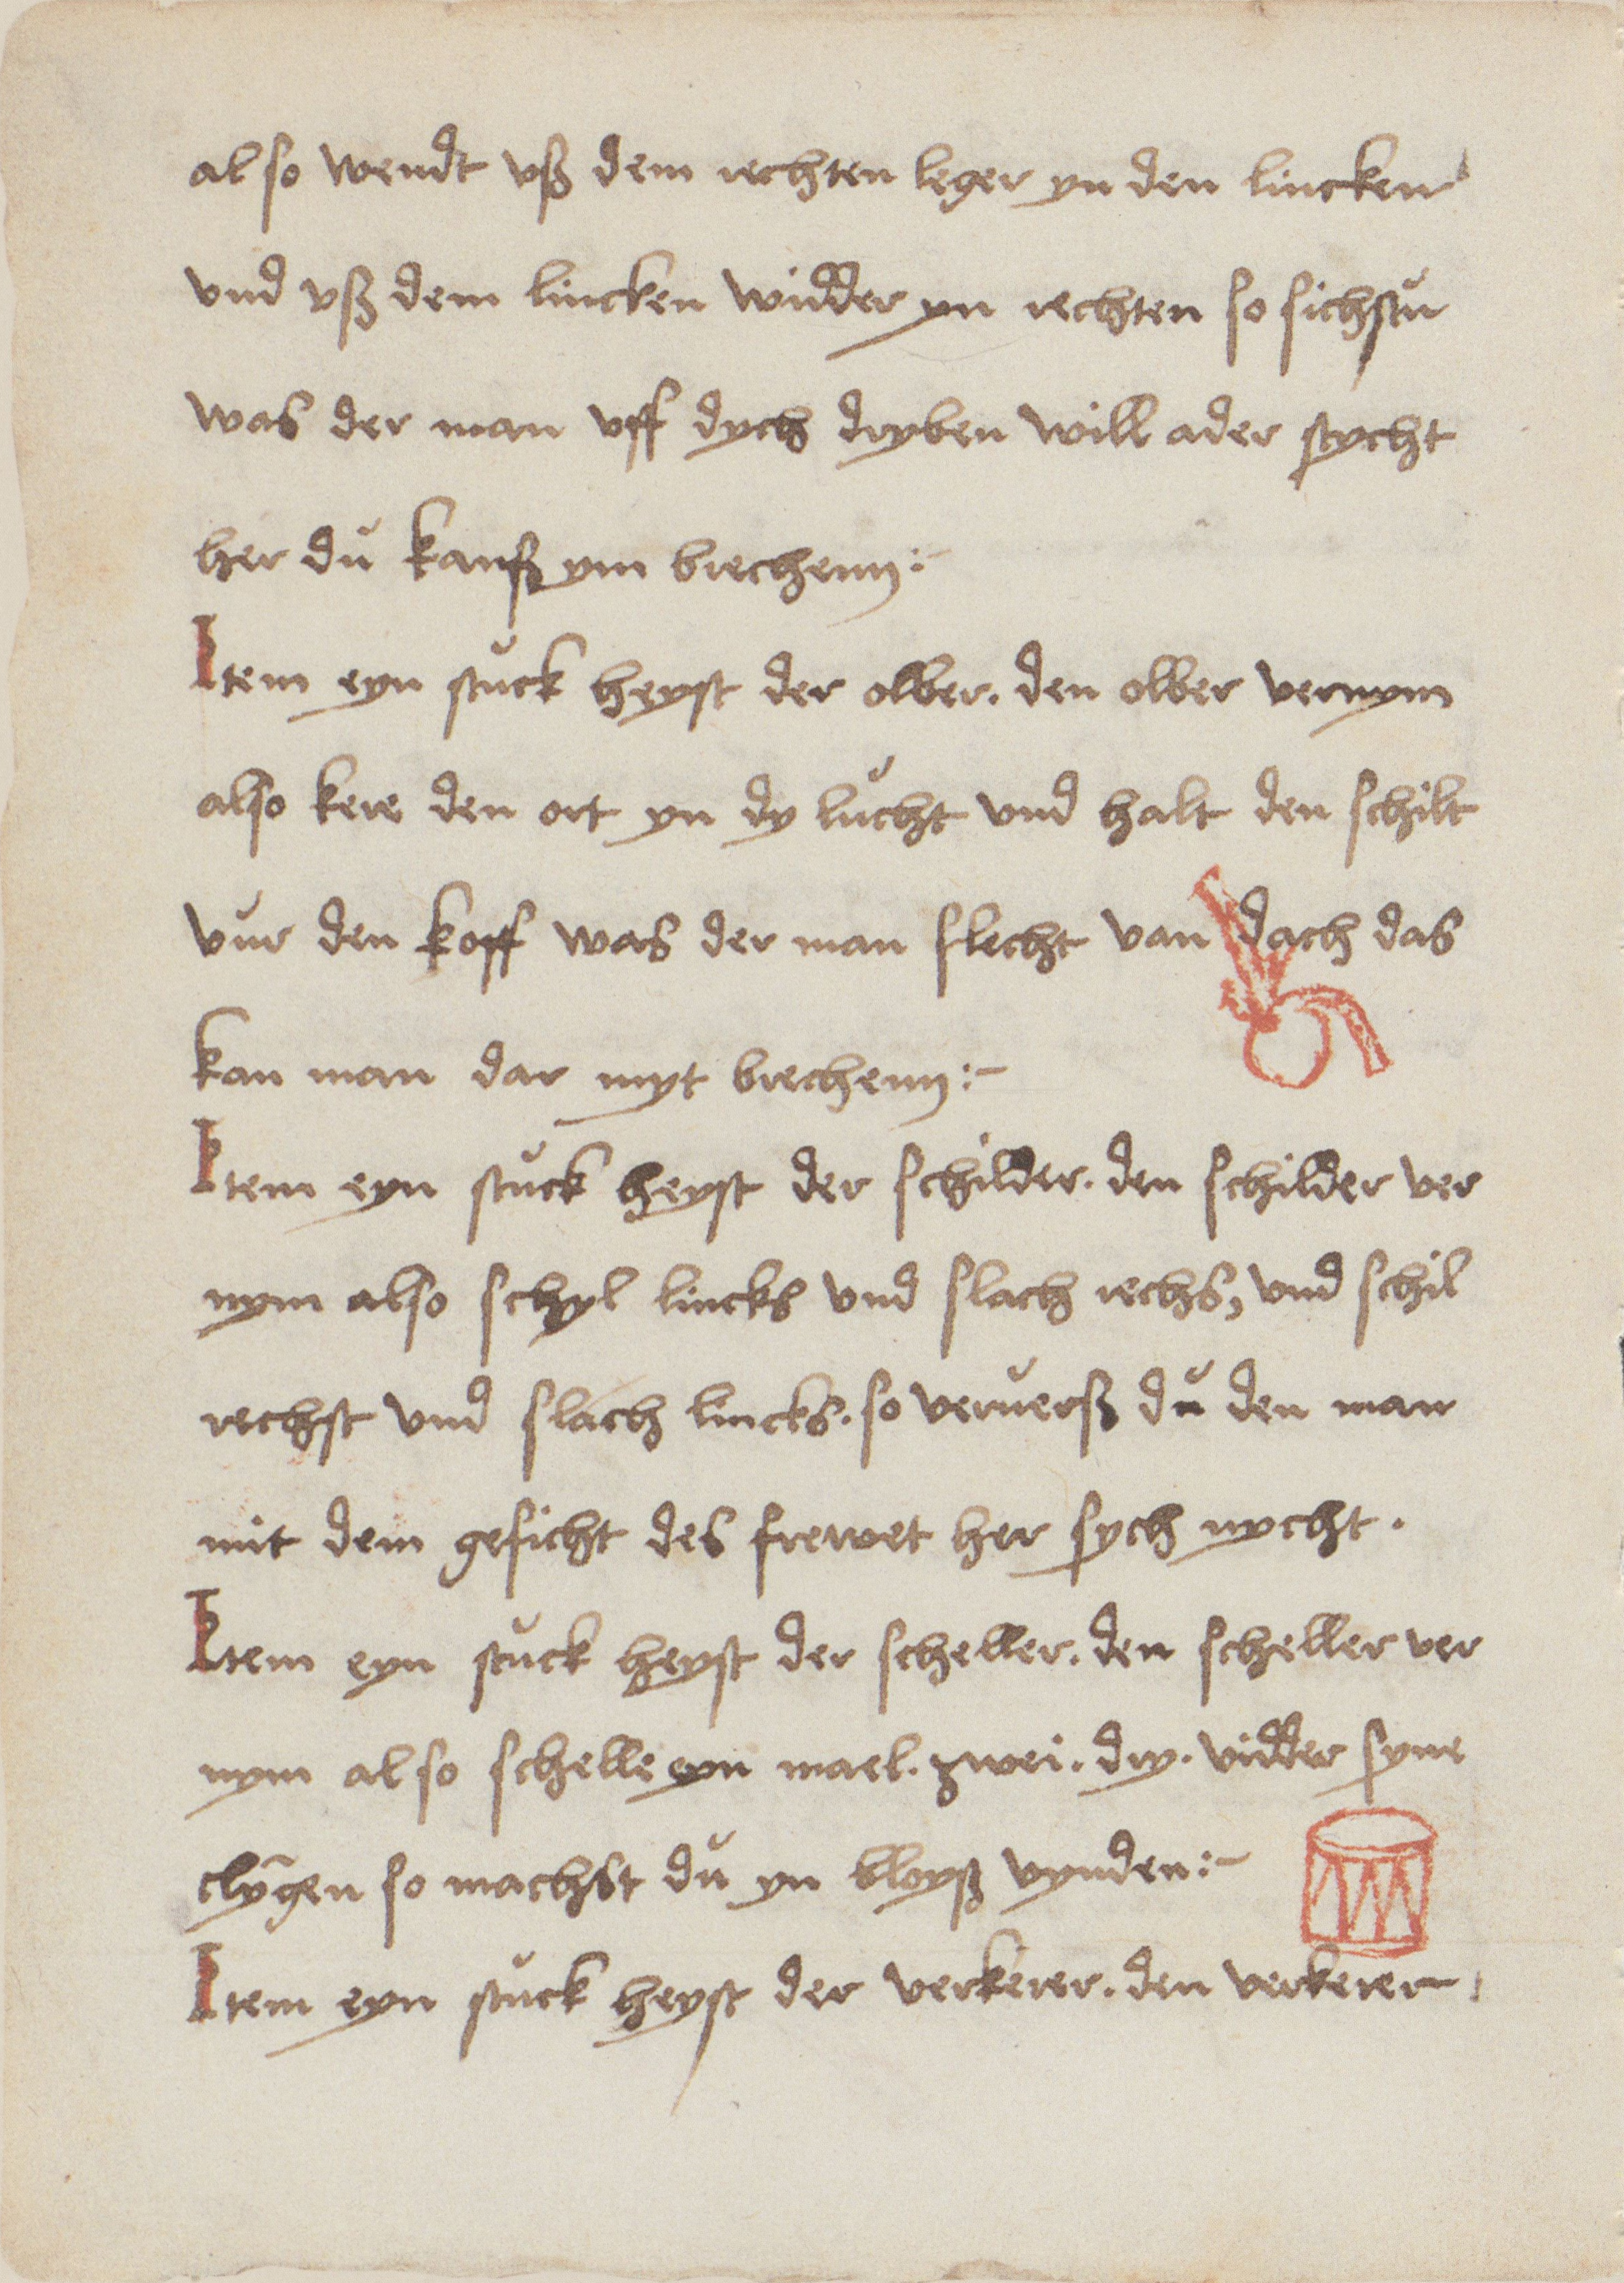 also wendt vß dem rechten leger yn den lincken
vnd vß dem lincken widder yn rechten so sichstu
was der man vff dych dryben will ader stycht
her dŭ kanß ym brechenn:-
Item eyn stŭck heyst der olber. den olber vernym
also kere den ort yn dy lŭcht vnd halt den schilt
vŭr den kopff was der man slecht van dach das
kan man dar myt brechenn:-
Item eyn stŭck heyst der schilder. den schilder ver
nym also schyl lincks vnd slach rechs, vnd schil
rechst vnd slach lincks. so verŭerß dŭ den man
mit dem gesicht des frewet her sych nycht.
Item eyn stŭck heyst der scheller. den scheller ver
nym also schelle eyn mael. zwei. dry. vidder syne
clȳgen so machst dŭ yn bloyß vynden:-
Item eyn stŭck heyst der verkerer. den verkerer